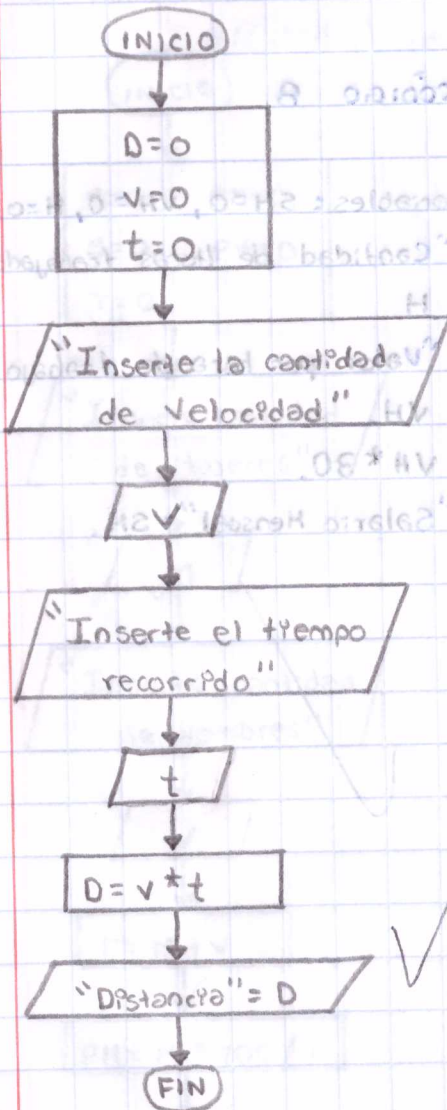 INICIO
D=0
V=0
t=0
"Inserte la cantidad
de velocidad"
V
"Inserte el tiempo
recorrido"
t
D= v*t
"Distancia"= D
FIN